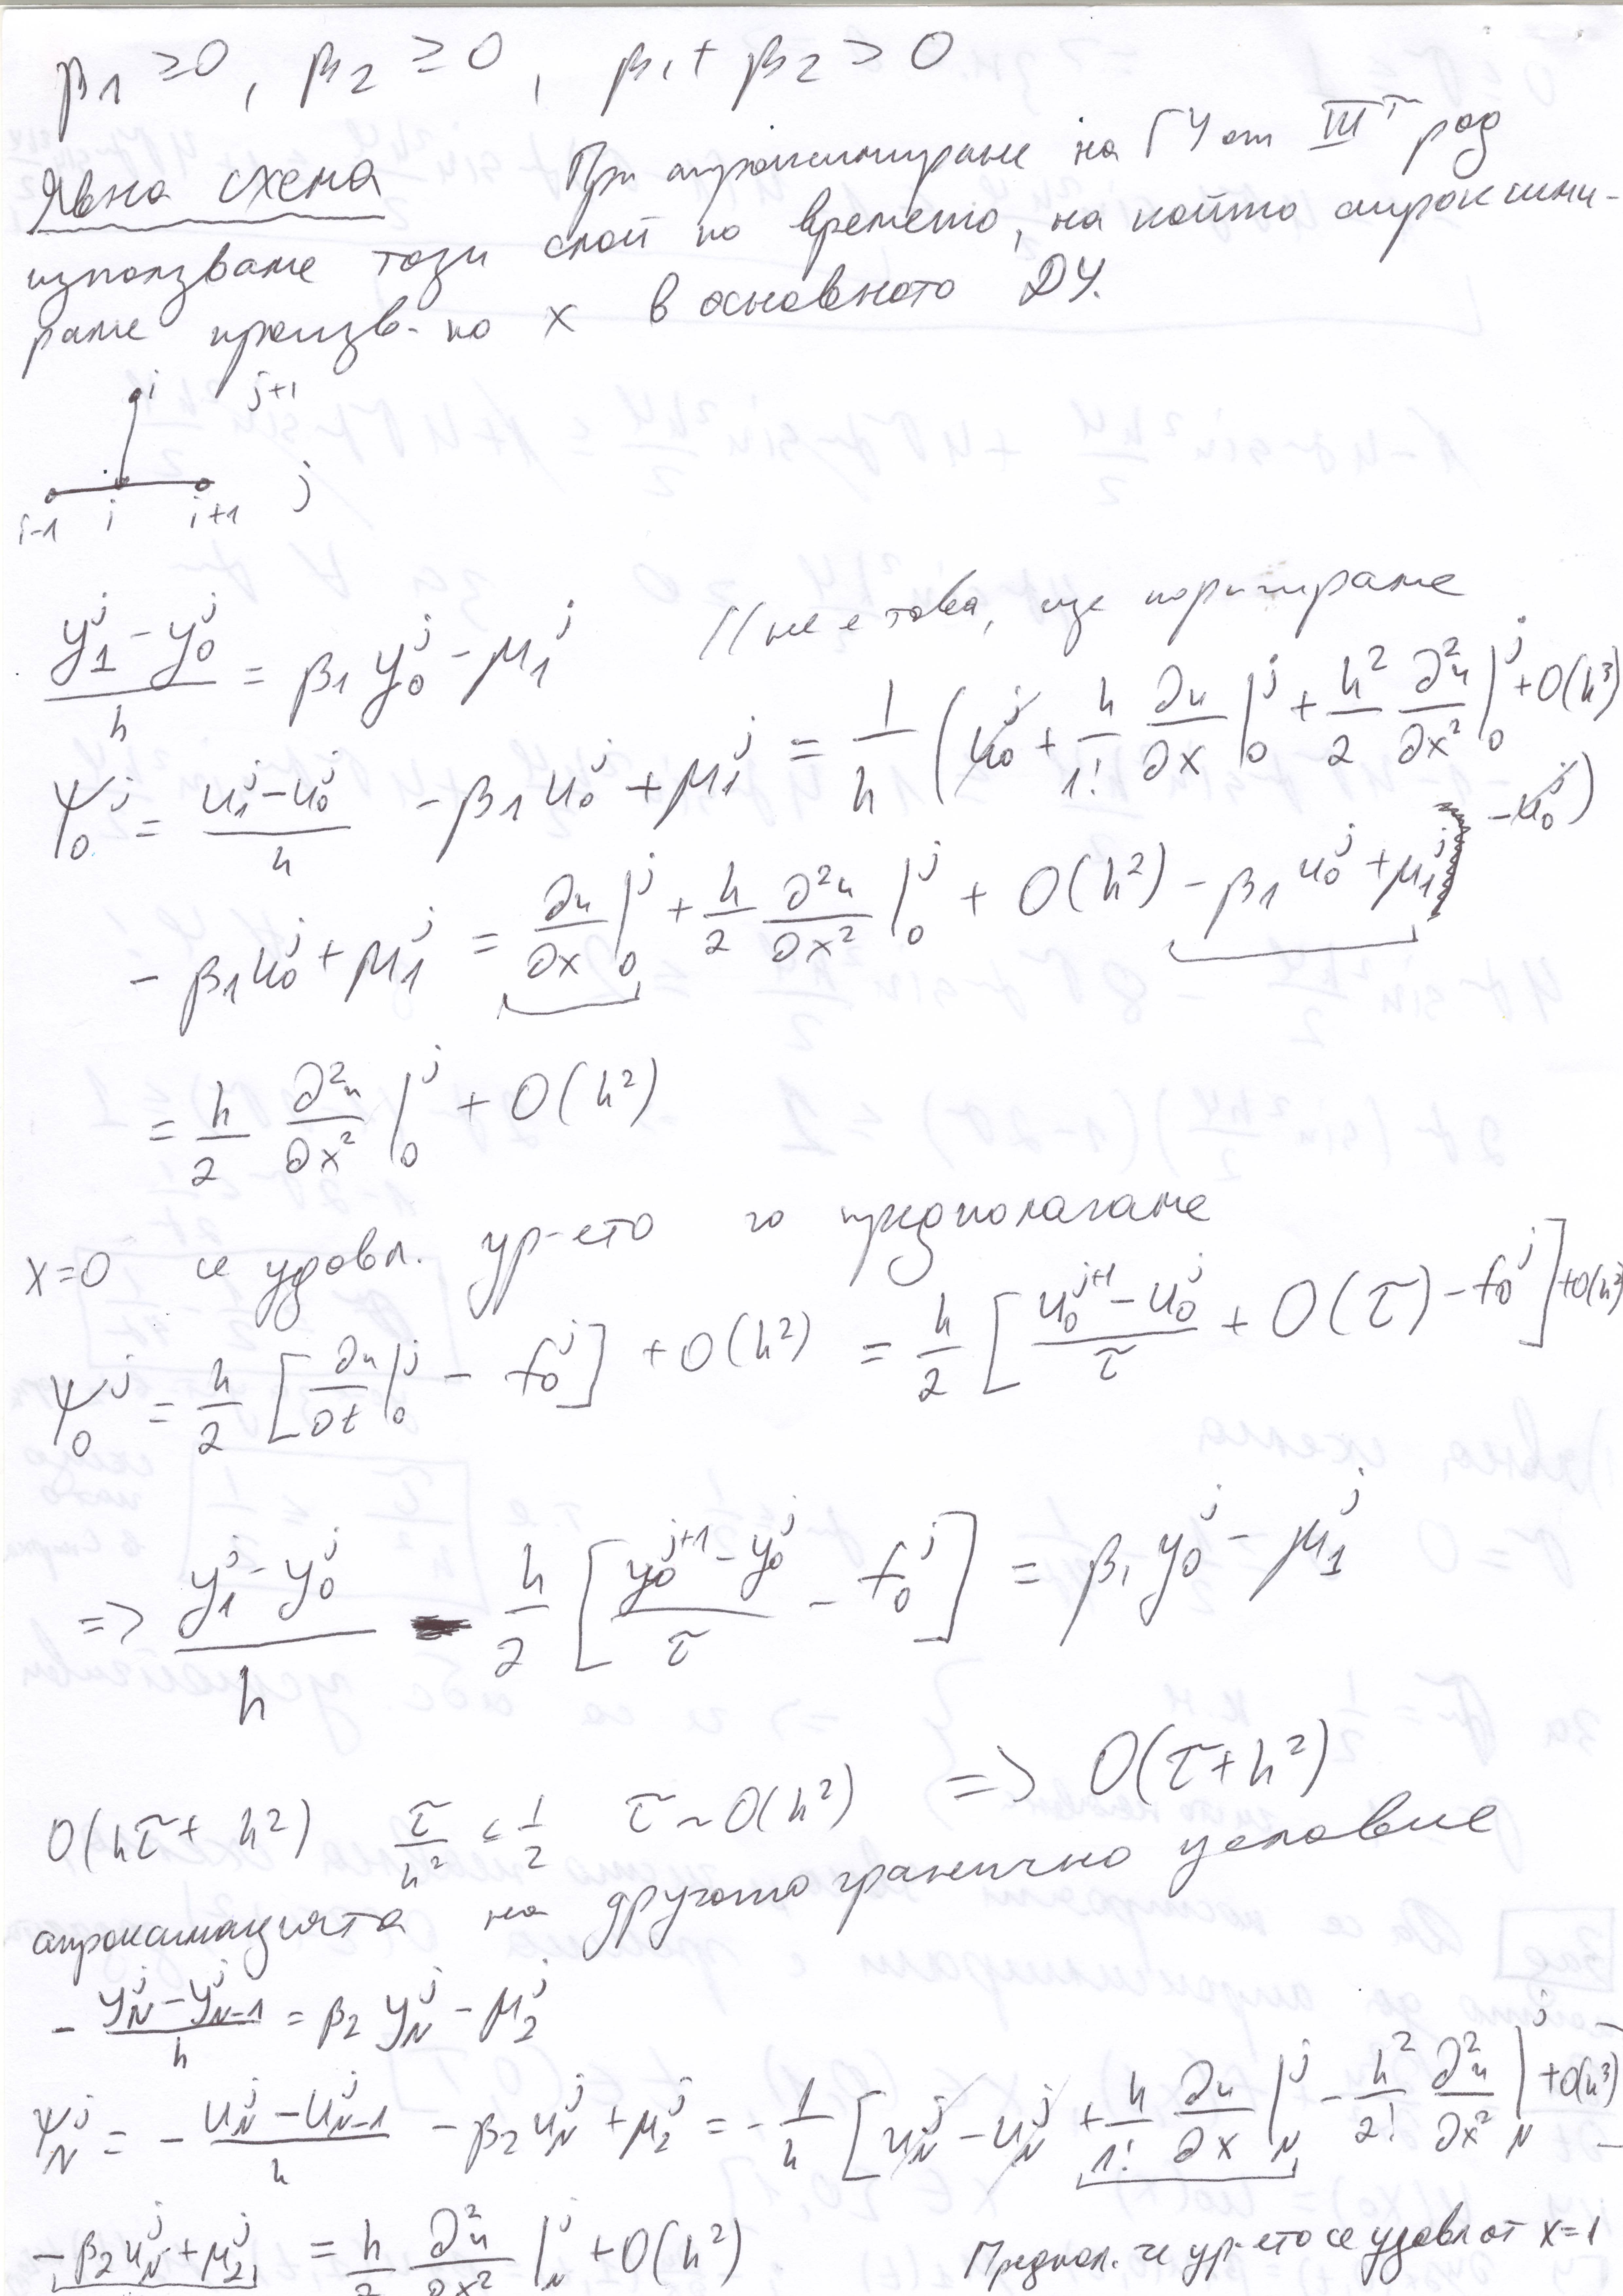 β₁ ≥ 0, β₂ ≥ 0, β₁ + β₂ > 0
Явна схема При апроксимиране на ГУ от IIIᵀ род
използваме този слой по времето, на който апроксими-
раме произв. по x в основното ДУ.
i j+1
i-1 i i+1 j
(y₁ʲ - y₀ʲ)/h = β₁ y₀ʲ - μ₁ʲ // не е това, ще коригираме
ψ₀ʲ = (u₁ʲ - u₀ʲ)/h - β₁ u₀ʲ + μ₁ʲ = 1/h (u₀ʲ + h/1! ∂u/∂x |₀ʲ + h²/2 ∂²u/∂x² |₀ʲ + O(h³) - u₀ʲ)
- β₁ u₀ʲ + μ₁ʲ = ∂u/∂x |₀ʲ + h/2 ∂²u/∂x² |₀ʲ + O(h²) - β₁ u₀ʲ + μ₁ʲ
= h/2 ∂²u/∂x² |₀ʲ + O(h²)
x=0 се удовл. ур-ето го предполагаме
ψ₀ʲ = h/2 [∂u/∂t |₀ʲ - f₀ʲ] + O(h²) = h/2 [(u₀ʲ⁺¹ - u₀ʲ)/τ + O(τ) - f₀ʲ] + O(h²)
=> (y₁ʲ - y₀ʲ)/h - h/2 [(y₀ʲ⁺¹ - y₀ʲ)/τ - f₀ʲ] = β₁ y₀ʲ - μ₁ʲ
O(hτ + h²) τ/h² ≤ 1/2 τ ~ O(h²) => O(τ + h²)
апроксимацията на другото гранично условие
- (y_Nʲ - y_{N-1}ʲ)/h = β₂ y_Nʲ - μ₂ʲ
ψ_Nʲ = - (u_Nʲ - u_{N-1}ʲ)/h - β₂ u_Nʲ + μ₂ʲ = - 1/h [u_Nʲ - u_Nʲ + h/1! ∂u/∂x |_Nʲ - h²/2! ∂²u/∂x² |_Nʲ + O(h³) -
- β₂ u_Nʲ + μ₂ʲ = h/2 ∂²u/∂x² |_Nʲ + O(h²) Предпол. че ур-ето се удовл от x=1